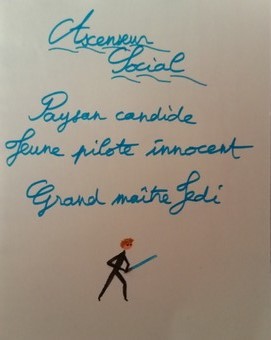 Ascenseur
Social
Paysan candide
Jeune pilote innocent
Grand maître Jedi